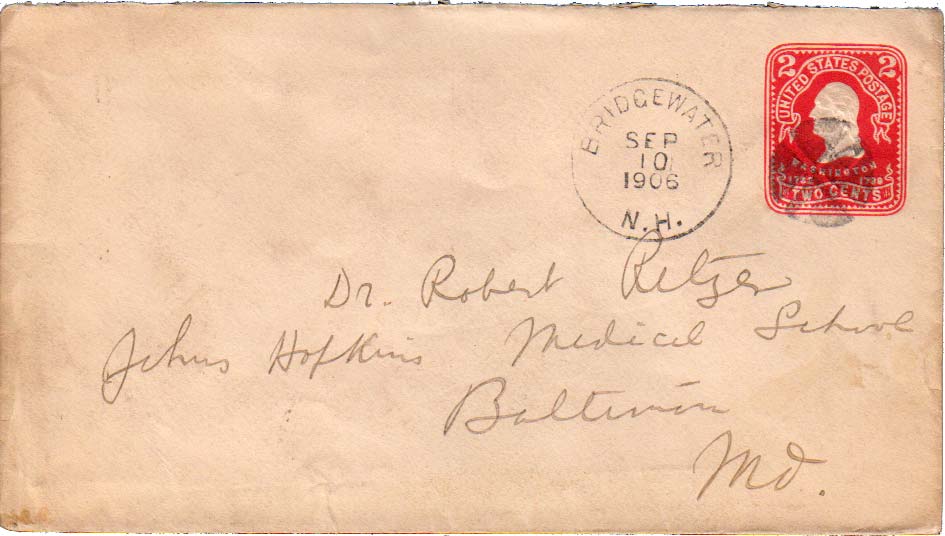 2 2
UNITED STATES POSTAGE
WASHINGTON
1732 1799
TWO CENTS
BRIDGEWATER
SEP
10
1906
N.H.
Dr. Robert Retzer
Johns Hopkins Medical School
Baltimore
Md.